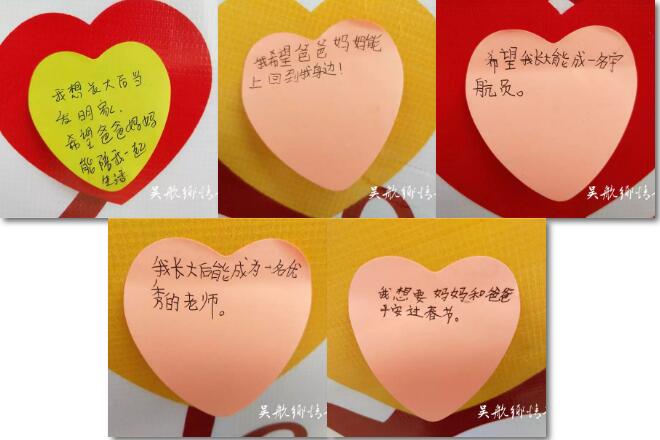 我想长大后当
发明家.
希望爸爸妈妈
能陪我一起
生活
我希望爸爸妈妈能
上回到我身边!
希望我长大能成一名宇
航员。
我长大后能成为一名优
秀的老师。
我想要妈妈和爸爸
平安过春节。
吴航乡情
吴航乡情
吴航乡情
吴航乡情
吴航乡情